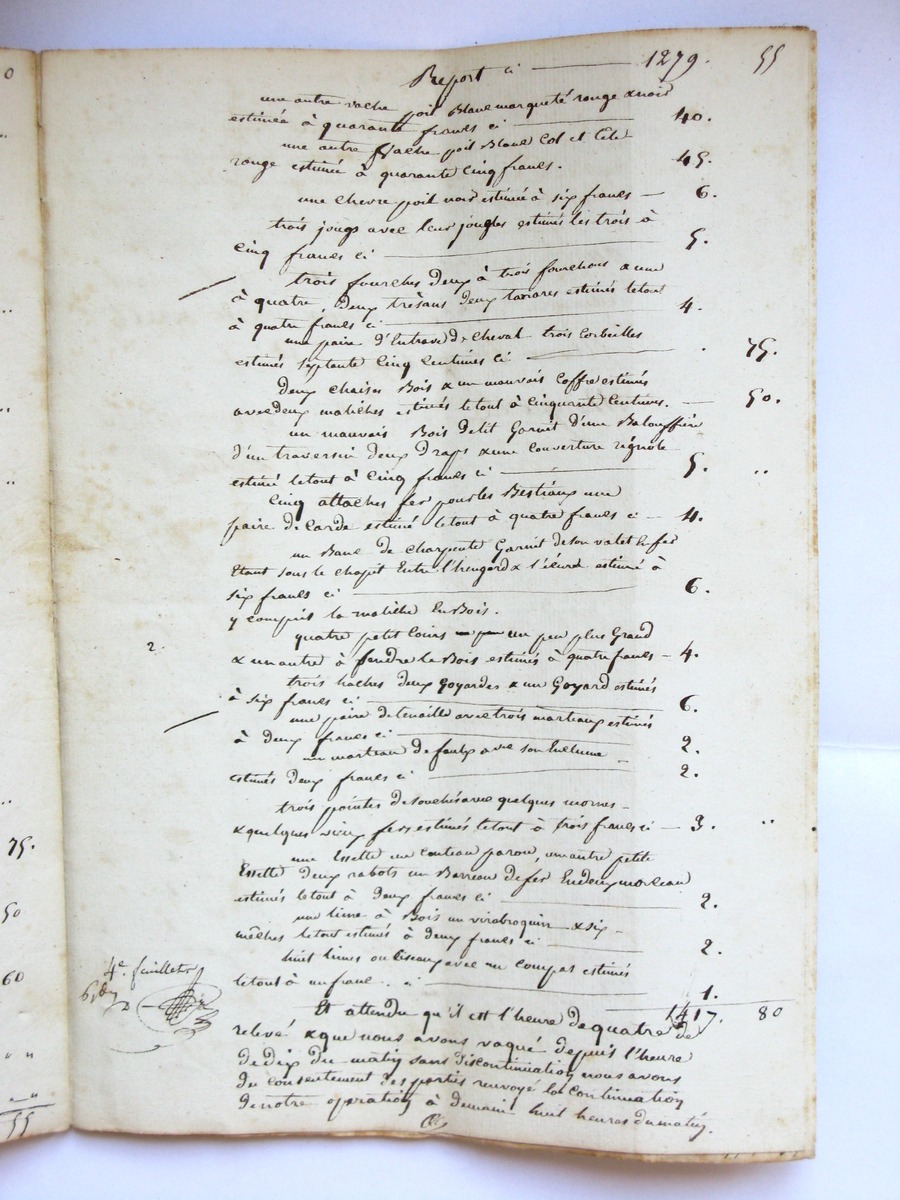 Report ci 1279. 55
une autre vache poil Blanc marqueté rouge & noir
estimée à quarante francs ci 40.
une autre vache poil Blanc Col et tête
rouge estimée à quarante Cinq francs. 45.
une chevre poil noir estimée à six francs — 6.
trois jougs avec leur jougles estimés les trois à
Cinq francs ci 5.
trois fourches deux à trois fourchons & une
à quatre, deux trèsans deux taviares estimés letout
à quatre francs ci 4.
une paire d'Entrave de cheval trois Corbeilles
estimés septante Cinq Centimes ci . 75.
deux chaises Bois & un mauvais Coffre estimés
avec deux matiches estimés letout à Cinquante Centimes. — 50.
un mauvais Bois de lit Garnit d'une Balouffière
d'un traversin deux Draps & une Couverture
estimé letout à Cinq francs ci 5. ..
Cinq attaches fer pour les Bestiaux une
paire de Carde estimé letout à quatre francs ci — 4.
un Banc de charpente Garnit de son valet de fer
Etant sous le chapit Entre l'hengard & l'écurd estimé à
six francs ci 6.
y compris la matiche En Bois.
quatre petit Coins un peu plus Grand
2.
& un autre à fendre le Bois estimés à quatre francs — 4.
trois haches deux Goyardes & un Goyard estimés
à six francs ci 6.
une paire de tenaille avec trois marteaux estimés
à deux francs ci 2.
un marteau de faulx avec son Enclume
estimés deux francs ci 2.
trois pointes de avec quelques mornes
& quelques vieux fers estimés letout à trois francs ci — 3. ..
une Essette un Couteau parou, un autre petite
Essette deux rabots un Barreau de fer En deux morceau
estimés letout à deux francs ci 2.
une lime à Bois un virebroquin & six
mêches letout estimés à deux francs ci 2.
huit limes ou Ciseaux avec un Compas estimés
letout à un franc. . 1.
1417. 80
4e. feuillets
Et attendu qu'il est l'heure de quatre de
relevé & que nous avons vaqué depuis l'heure
de dix du matin sans discontinuation nous avons
du consentement des parties renvoyé la Continuation
de notre opération à demain huit heures du matin.
0
75.
50
60
55